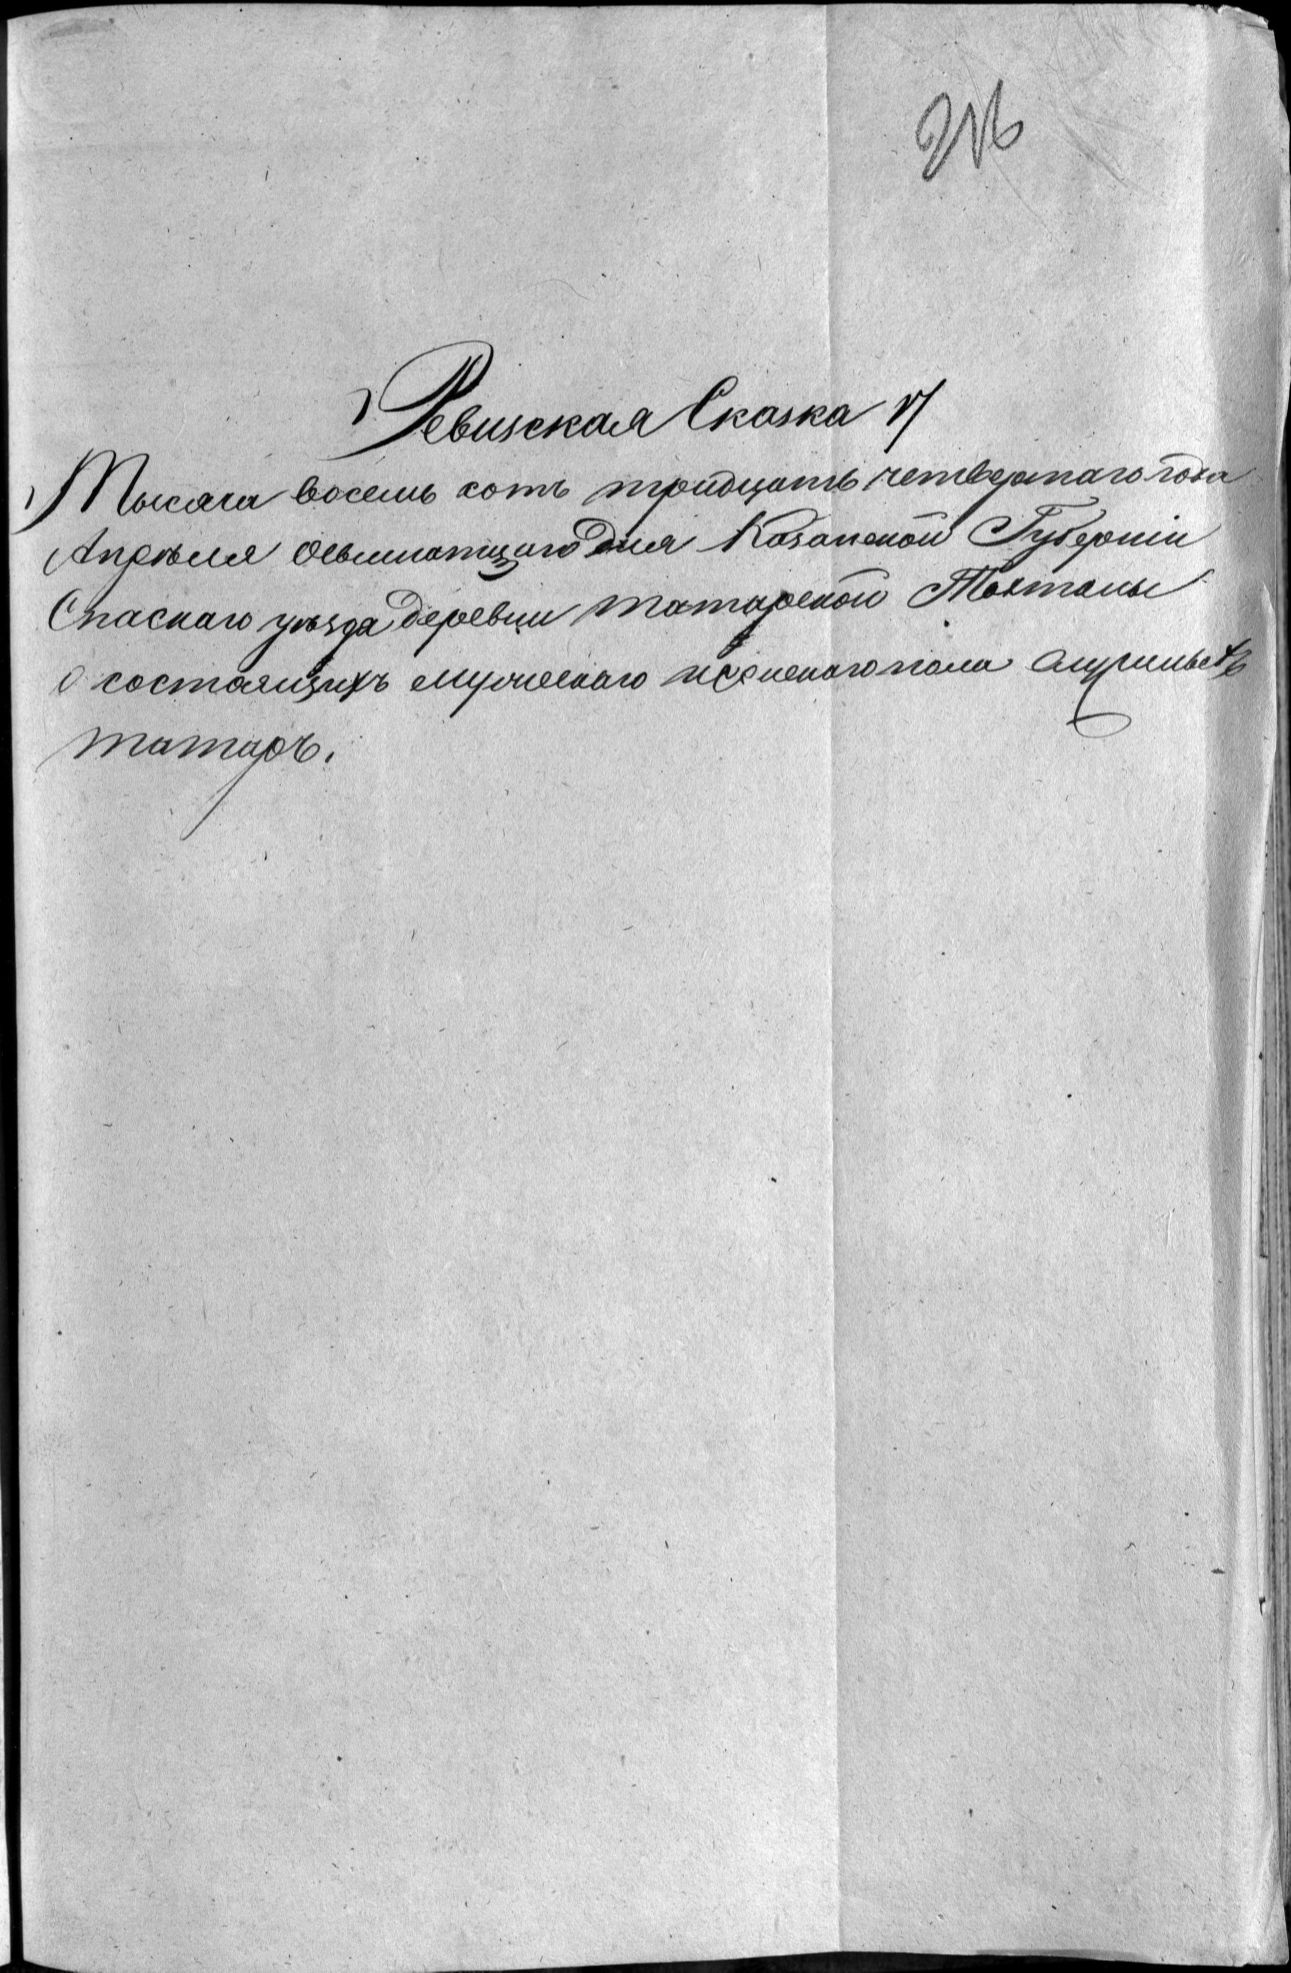 Ревизская Сказка
Тысяча восемь сотъ тридцать четвертаго года
Апреля дня Казанской Губернiи
Спаскаго уѣзда деревни татарской Тахталы
о состоящихъ мужескаго и женскаго пола служилыхъ
татаръ.